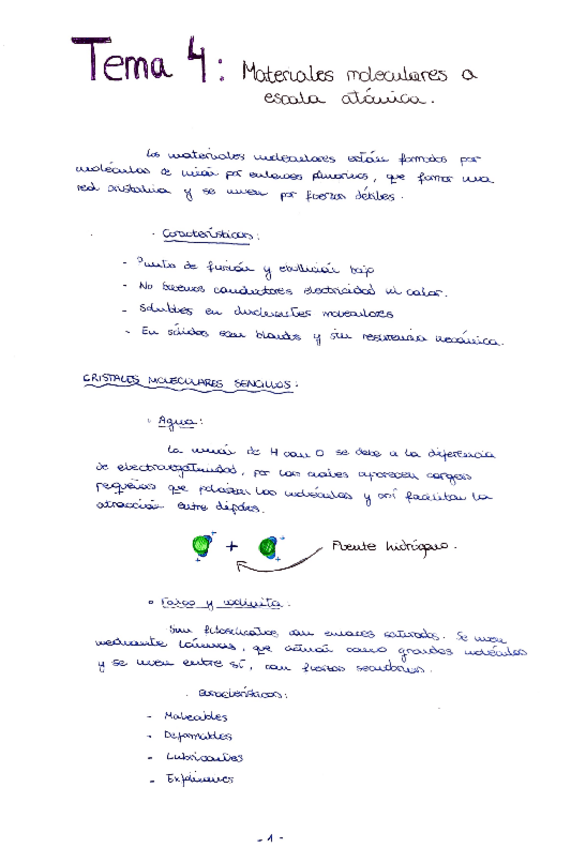 Tema 4: Materiales moleculares a
escala atómica.
Los materiales moleculares están formados por
moléculas de unión por enlaces primarios, que forman una
red cristalina y se unen por fuerzas débiles.
· Características:
- Puntos de fusión y ebullición bajo
- No buenos conductores electricidad ni calor.
- Solubles en disolventes moleculares
- En sólidos son blandos y sin resistencia mecánica.
CRISTALES MOLECULARES SENCILLOS:
· Agua:
La unión de H con O se debe a la diferencia
de electronegatividad, por los cuales aparecen cargas
pequeñas que polarizan las moléculas y así facilitan la
atracción entre dipolos.
+ Puente hidrógeno.
· Talco y
Son filosilicatos con enlaces saturados. Se unen
mediante láminas, que actúan como grandes moléculas
y se unen entre sí, con fuerzas secundarias.
· Características:
- Maleables
- Deformables
- Lubricantes
-
- 1 -